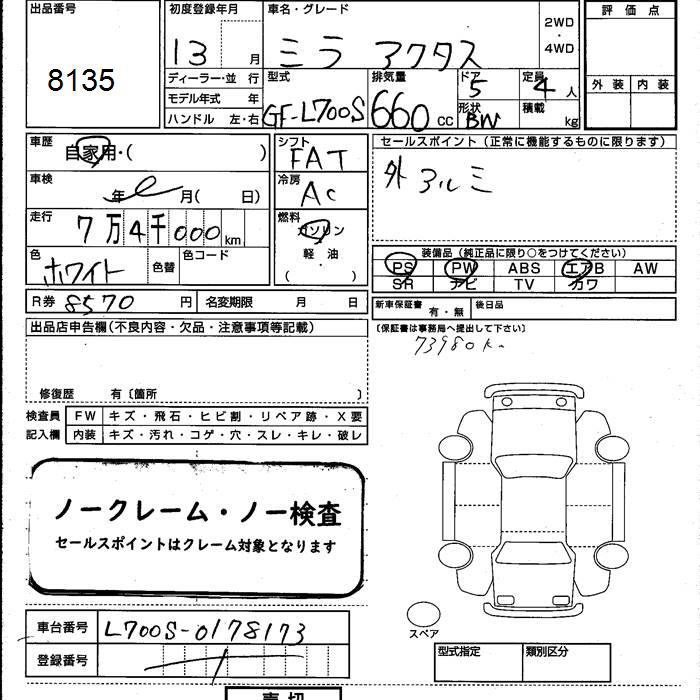 出品番号
8135
初度登録年月
13 月
車名・グレード
ミラ アクタス
2WD
・
4WD
評価点
外装 内装
ディーラー・並 行
モデル年式 年
ハンドル 左・右
型式
GF-L700S
排気量
660 cc
ドア
5
形状
BW
定員
4 人
積載
kg
車歴
自家用・( )
車検
年 月( 日)
走行
7万4千000km
色
ホワイト
色替
色コード
シフト
FAT
冷房
AC
燃料
ガソリン
・
軽油
( )
セールスポイント(正常に機能するものに限ります)
外 アルミ
装備品(純正品に限り○をつけてください)
PS PW ABS エアB AW
SR ナビ TV カワ
R券 8570 円
名変期限 月 日
新車保証書 有・無
後日品
(保証書は事務局へ提出して下さい)
73980k
出品店申告欄(不良内容・欠品・注意事項等記載)
修復歴 有〔箇所 〕
検査員
記入欄
FW キズ・飛石・ヒビ割・リペア跡・X要
内装 キズ・汚れ・コゲ・穴・スレ・キレ・破レ
ノークレーム・ノー検査
セールスポイントはクレーム対象となります
車台番号 L700S-0178173
登録番号
スペア
型式指定 類別区分
売切